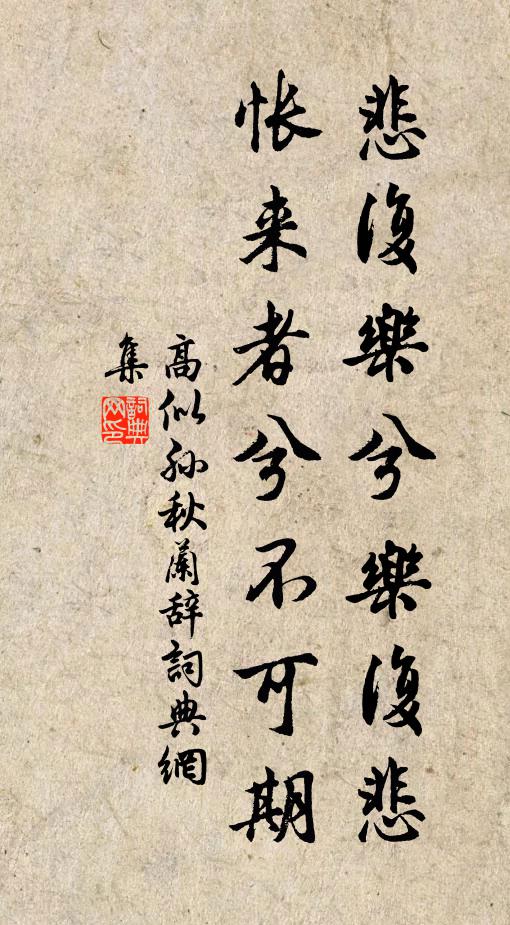 悲復樂兮樂復悲
悵来者兮不可期
高似孙秋蘭辞詞典網
集
詞典網印